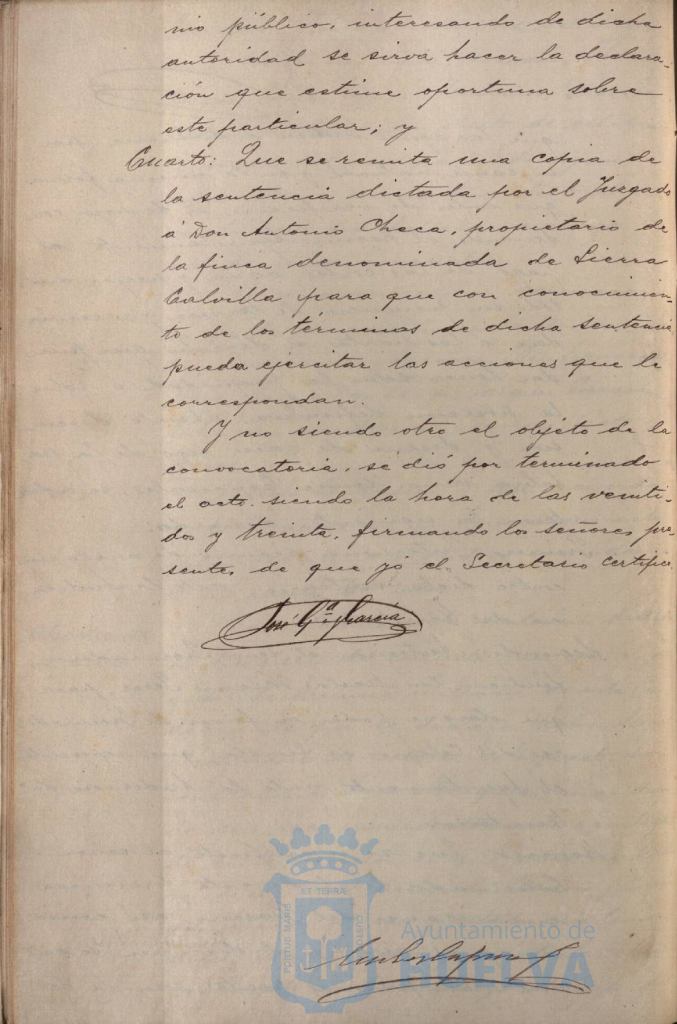 nio público, interesando de dicha
autoridad se sirva hacer la declara-
ción que estime oportuna sobre
este particular; y
Cuarto: Que se remita una copia de
la sentencia dictada por el Juzgado
á Don Antonio Checa, propietario de
la finca denominada de Sierra
Calvilla para que con conocimien-
to de los términos de dicha sentencia
pueda ejercitar las acciones que le
correspondan.
Y no siendo otro el objeto de la
convocatoria, se dió por terminado
el acto siendo la hora de las veinti-
dos y treinta, firmando los señores pre-
sentes, de que yó el Secretario certifico.
José Gª García
PORTUS MARIS ET TERRAE CUSTODIA
Ayuntamiento de
HUELVA